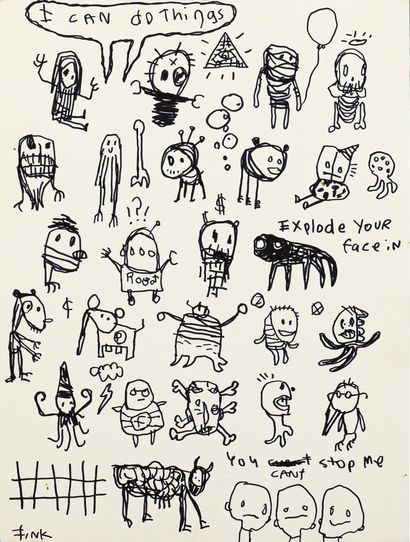 I CAN do Things
!?
$
EXPLODE YOUR
face in
Robot
&
You can't stop me
CANT
Fink